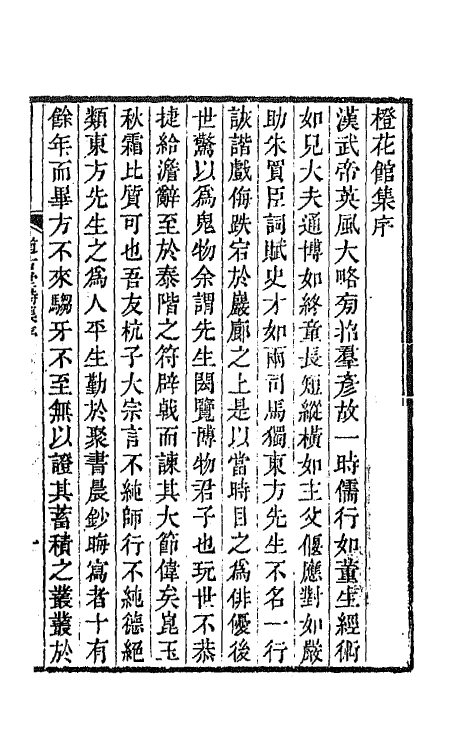 橙花館集序
漢武帝英風大略旁招羣彥故一時儒行如董生經術
如兒大夫通博如終童長短縱橫如主父偃應對如嚴
助朱買臣詞賦史才如兩司馬獨東方先生不名一行
詼諧戲侮跌宕於巖廊之上是以當時目之為俳優後
世驚以為鬼物余謂先生閎覽博物君子也玩世不恭
捷給澹辭至於泰階之符辟戟而諫其大節偉矣崑玉
秋霜比質可也吾友杭子大宗言不純師行不純德絕
類東方先生之為人平生勤於聚書晨鈔暝寫者十有
餘年而畢方不來騶牙不至無以證其蓄積之叢叢於
道古堂詩集序
一